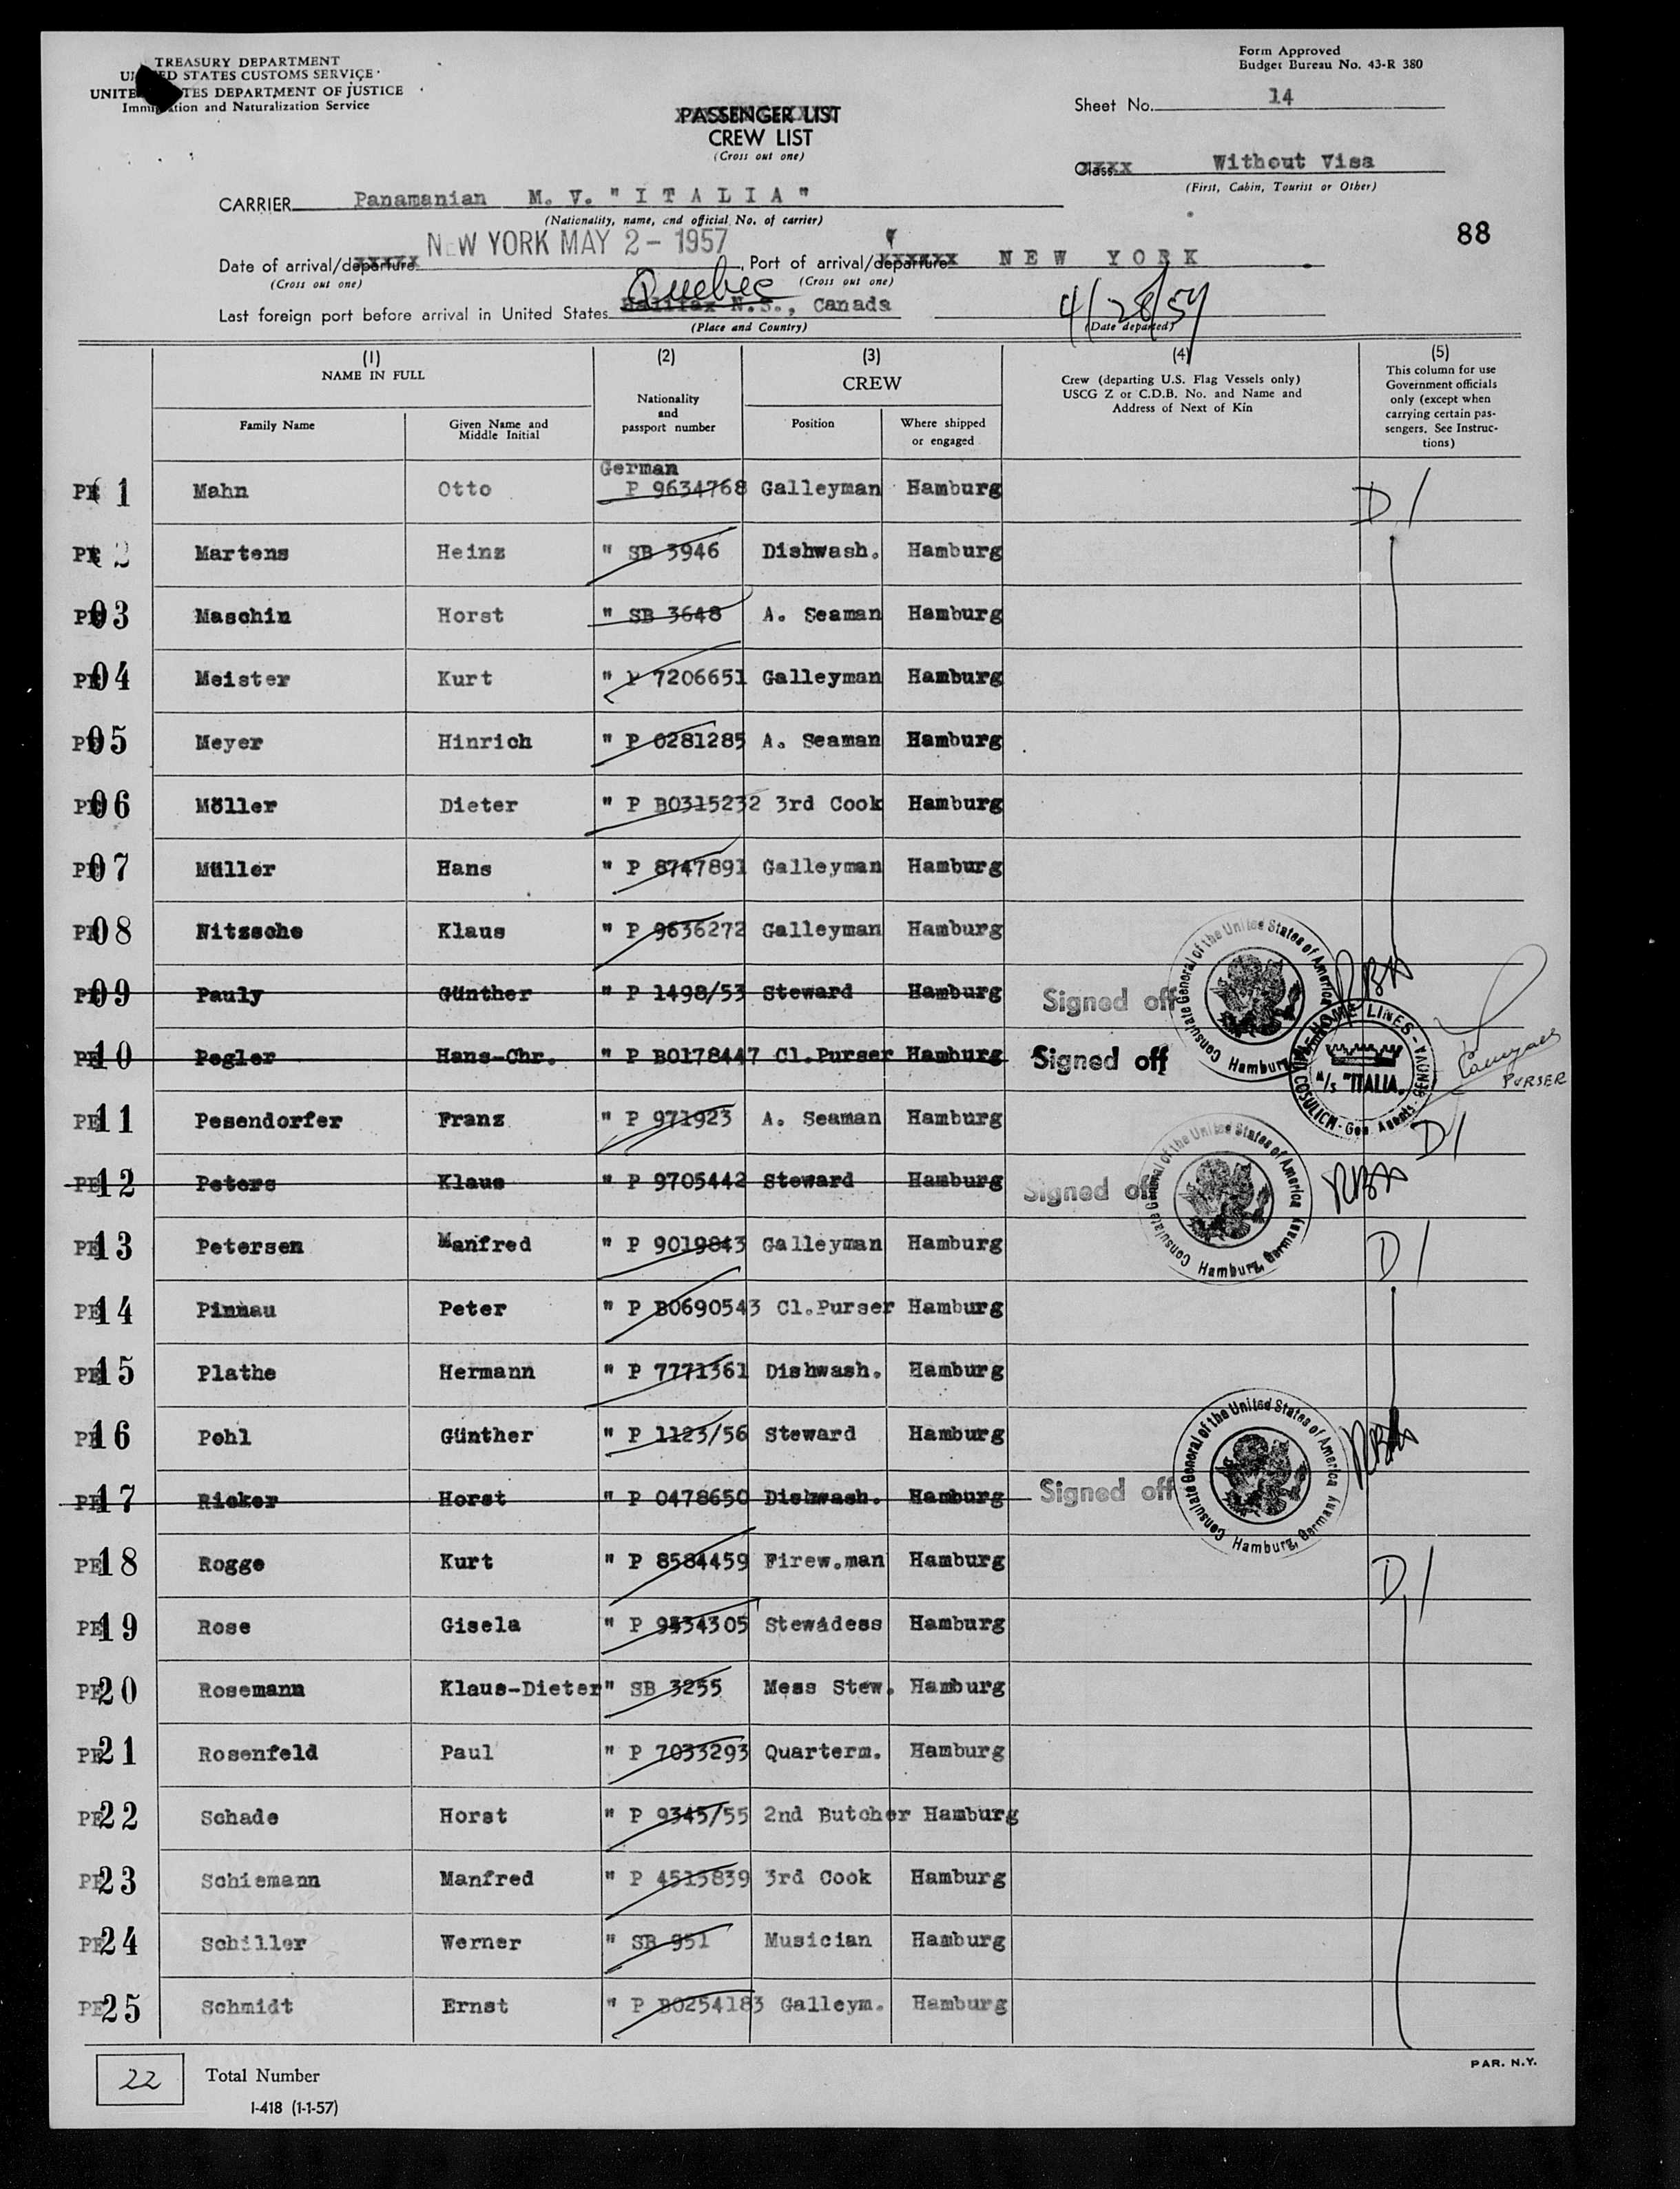 TREASURY DEPARTMENT
UNITED STATES CUSTOMS SERVICE
UNITED STATES DEPARTMENT OF JUSTICE
Immigration and Naturalization Service
Form Approved
Budget Bureau No. 43-R 380
Sheet No. 14
PASSENGER LIST
CREW LIST
(Cross out one)
Class Without Visa
(First, Cabin, Tourist or Other)
CARRIER Panamanian M. V. "ITALIA"
(Nationality, name, and official No. of carrier)
88
Date of arrival/departure NEW YORK MAY 2 - 1957, Port of arrival/departure NEW YORK
(Cross out one) (Cross out one)
Quebec
Last foreign port before arrival in United States Halifax N.S., Canada 4/28/57
(Place and Country) (Date departed)
(1) (2) (3) (4) (5)
NAME IN FULL
Family Name
Given Name and Middle Initial
Nationality and passport number
CREW
Position
Where shipped or engaged
Crew (departing U.S. Flag Vessels only)
USCG Z or C.D.B. No. and Name and
Address of Next of Kin
This column for use
Government officials
only (except when
carrying certain pas-
sengers. See Instruc-
tions)
German
1 Mahn Otto P 9634768 Galleyman Hamburg D 1
2 Martens Heinz " SB 3946 Dishwash. Hamburg
03 Maschin Horst " SB 3648 A. Seaman Hamburg
04 Meister Kurt " P 7206651 Galleyman Hamburg
05 Meyer Hinrich " P 0281285 A. Seaman Hamburg
06 Möller Dieter " P B0315232 3rd Cook Hamburg
07 Müller Hans " P 8747891 Galleyman Hamburg
08 Nitzsche Klaus " P 9636272 Galleyman Hamburg
09 Pauly Günther " P 1498/53 Steward Hamburg Signed off RBA
10 Pegler Hans-Chr. " P B0178447 Cl.Purser Hamburg Signed off
Consulate General of the United States of America Hamburg, Germany
HOME LINES - GENOVA
M/S "ITALIA"
COSULICH - Gen. Agents
PURSER
11 Pesendorfer Franz " P 971923 A. Seaman Hamburg D 1
12 Peters Klaus " P 9705442 Steward Hamburg Signed off RBA
Consulate General of the United States of America Hamburg, Germany
13 Petersen Manfred " P 9019843 Galleyman Hamburg D 1
14 Pinnau Peter " P B0690543 Cl.Purser Hamburg
15 Plathe Hermann " P 7771361 Dishwash. Hamburg
16 Pohl Günther " P 1123/56 Steward Hamburg
17 Ricker Horst " P 0478650 Dishwash. Hamburg Signed off RBA
Consulate General of the United States of America Hamburg, Germany
18 Rogge Kurt " P 8584459 Firew.man Hamburg D 1
19 Rose Gisela " P 9434305 Stewadess Hamburg
20 Rosemann Klaus-Dieter " SB 3255 Mess Stew. Hamburg
21 Rosenfeld Paul " P 7033293 Quarterm. Hamburg
22 Schade Horst " P 9345/55 2nd Butcher Hamburg
23 Schiemann Manfred " P 4515839 3rd Cook Hamburg
24 Schiller Werner " SB 951 Musician Hamburg
25 Schmidt Ernst " P B0254183 Galleym. Hamburg
22 Total Number
PAR. N.Y.
I-418 (1-1-57)